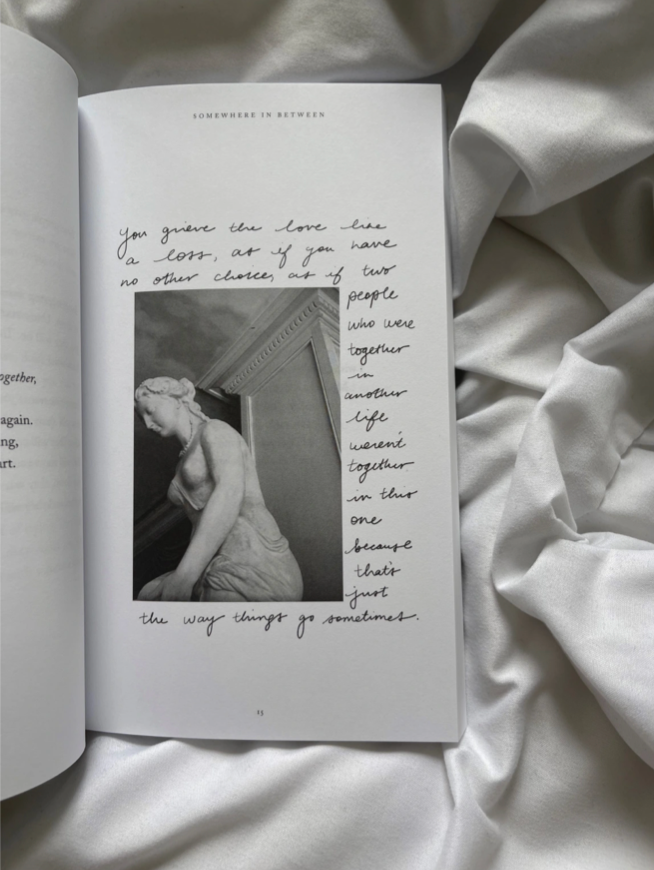 ogether,
again.
ng,
art.
SOMEWHERE IN BETWEEN
you grieve the love like
a loss, as if you have
no other choice, as if two
people
who were
together
in
another
life
weren't
together
in this
one
because
that's
just
the way things go sometimes.
15